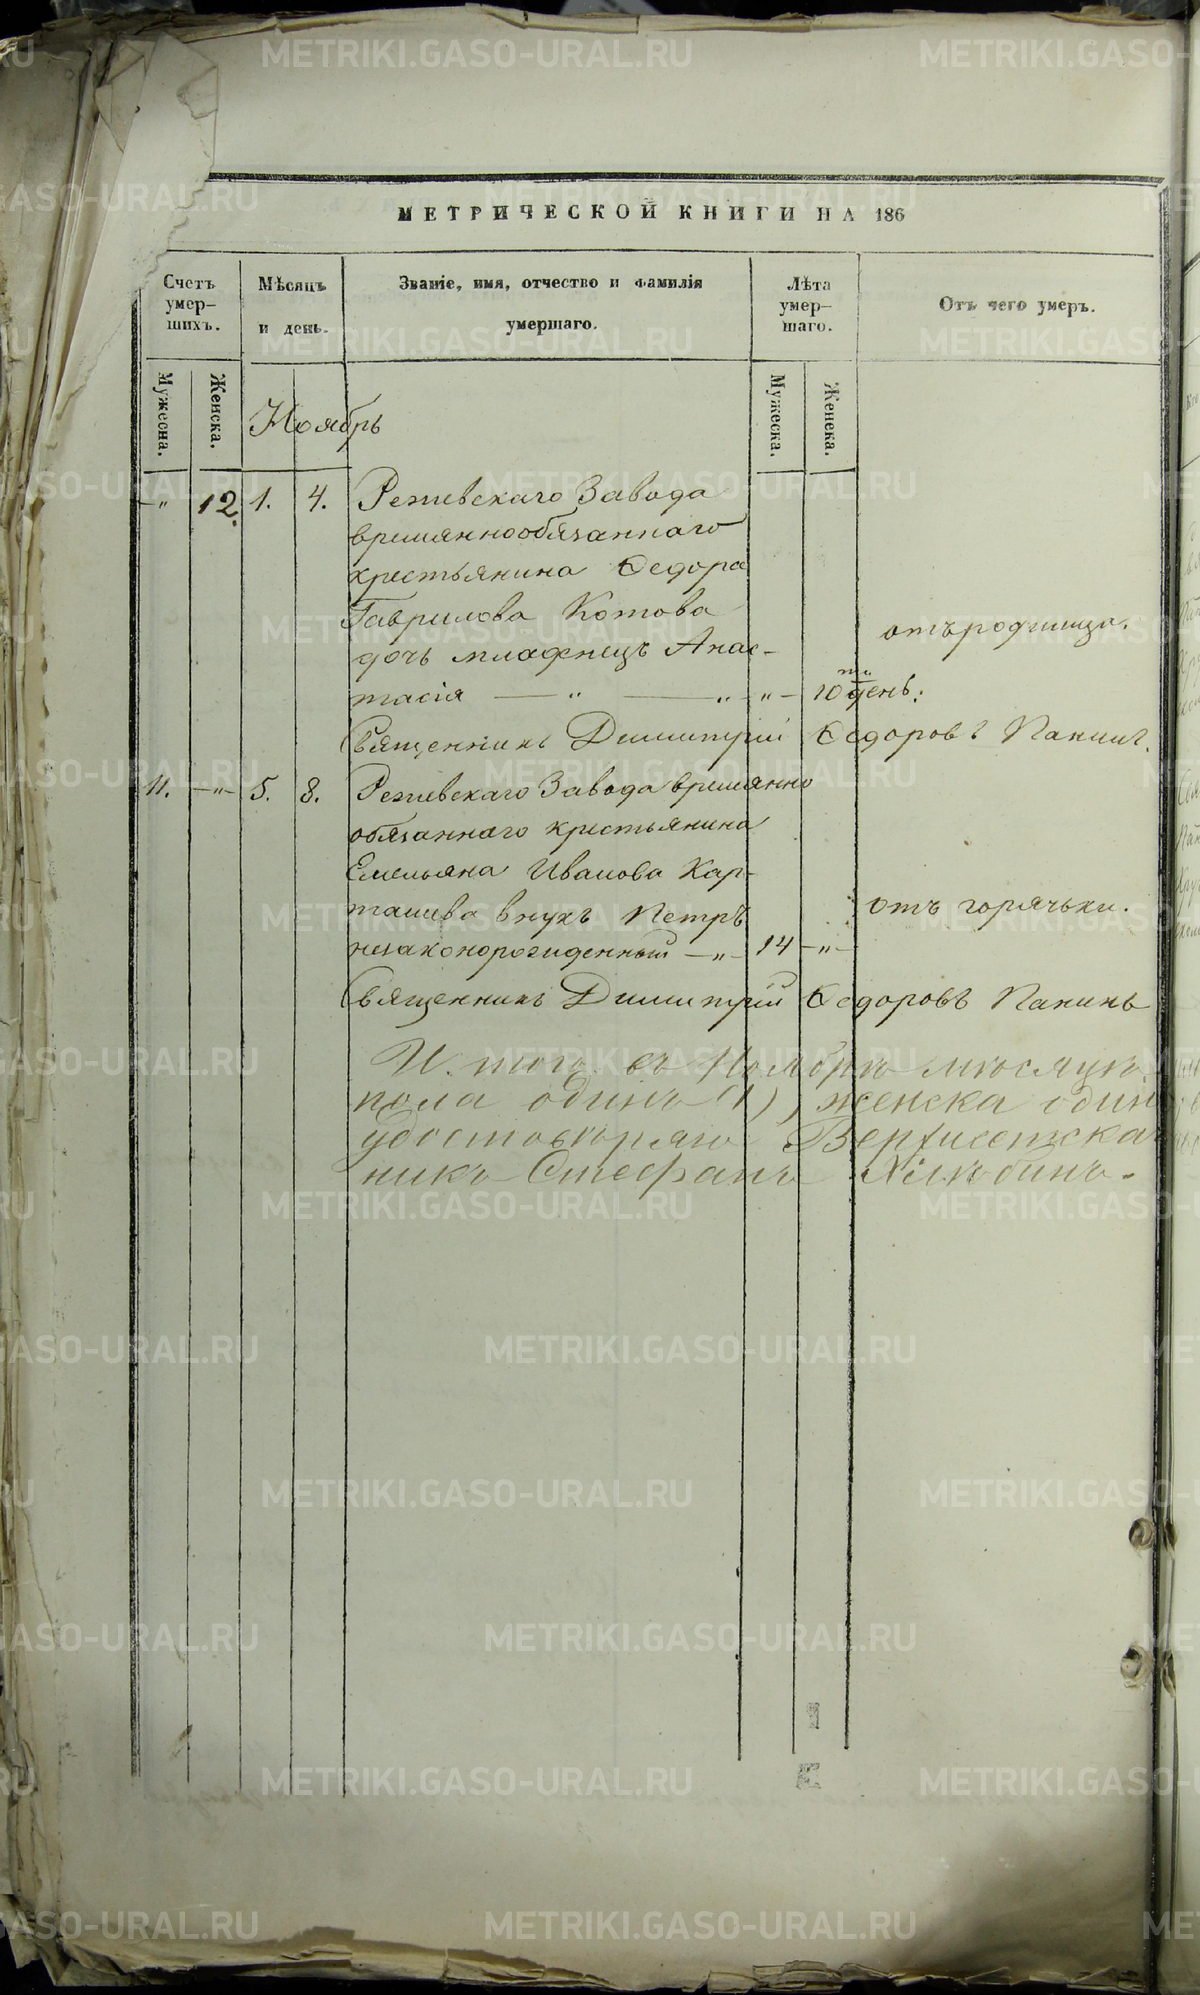 МЕТРИЧЕСКОЙ КНИГИ НА 186
Счетъ умер-шихъ.
Мѣсяцъ и день.
Званіе, имя, отчество и фамилія умершаго.
Лѣта умер-шаго.
Отъ чего умеръ.
Мужеска.
Женска.
Мужеска.
Женска.
Ноябрь
„ 12. 1. 4. Режевскаго Завода
времяннообязаннаго
крестьянина Ѳедора
Гаврилова Котова
дочь младенецъ Анас-
тасія — „ — „ „ 10 день.
отъ родимца.
Священникъ Димитрій Ѳедоровъ Панинъ.
11. — „ — 5. 8. Режевскаго Завода времянно
обязаннаго крестьянина
Емельяна Иванова Кар-
ташева внукъ Петръ
незаконорожденный — „ — 14 — „ —
отъ горячьки.
Священникъ Димитрій Ѳедоровъ Панинъ
Итого въ Ноябрѣ мѣсяцѣ
пола одинъ (1), женска один
удостовѣряю Верхисетска
никъ Стефанъ Хлѣбинъ.
METRIKI.GASO-URAL.RU